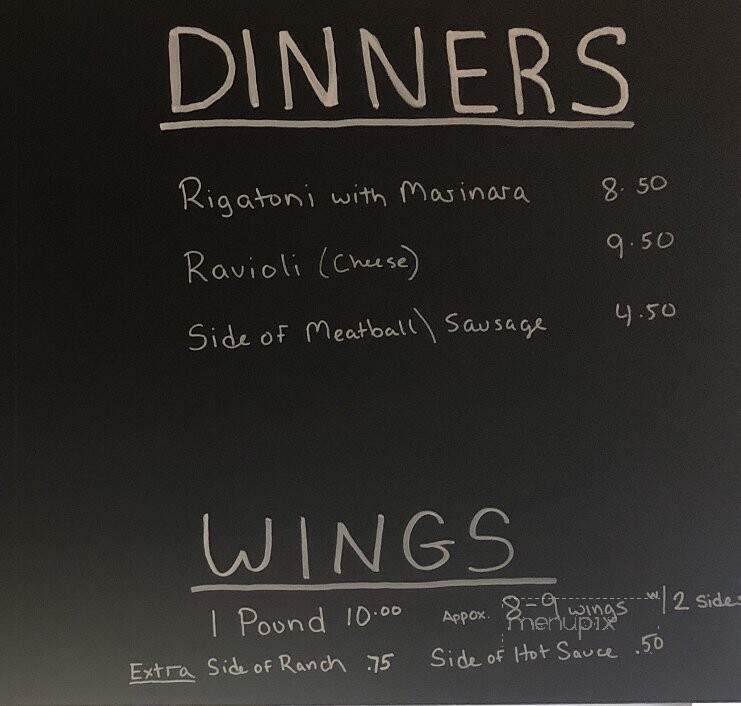 DINNERS
Rigatoni with Marinara 8.50
Ravioli (Cheese) 9.50
Side of Meatball\ Sausage 4.50
WINGS
1 Pound 10.00 Appox. 8-9 wings w/ 2 Sides
menupix
Extra Side of Ranch .75 Side of Hot Sauce .50